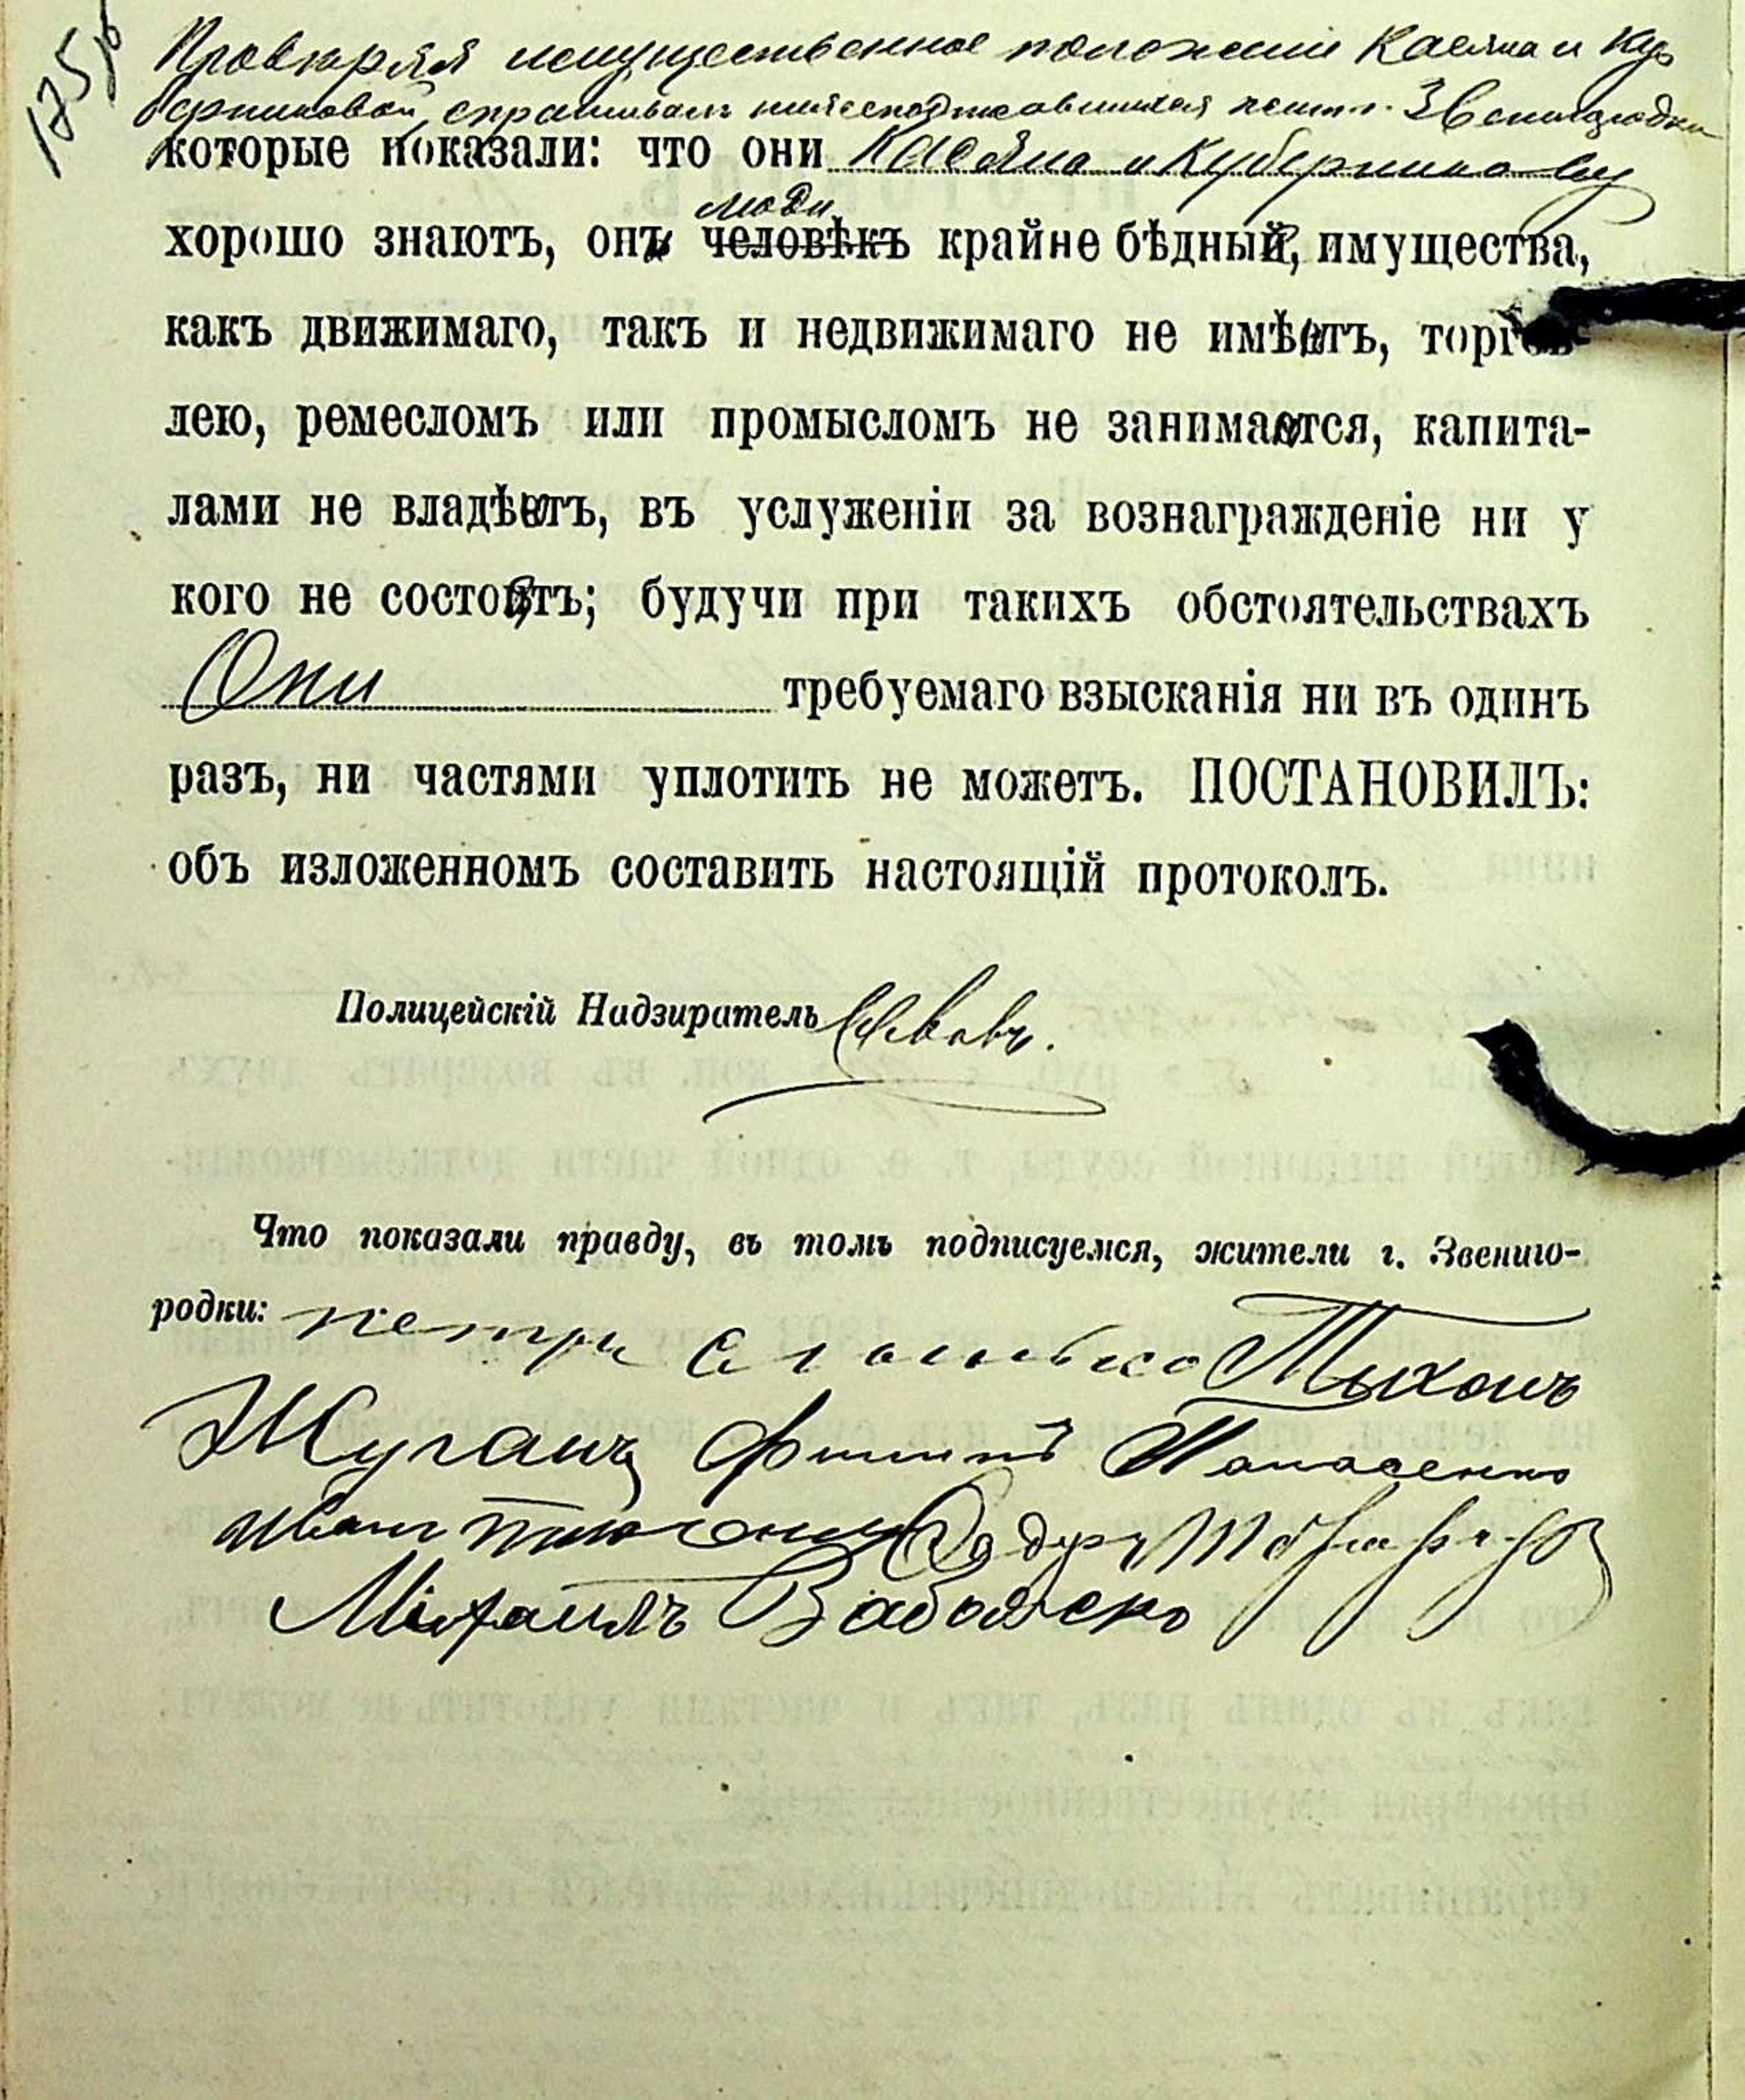 175 об
Провѣряя имущественное положеніе Касяна и Ку
берниковой, спрашивалъ нижеподписавшихся жит. г. Звенигородки
которые показали: что они Касяна и Куберникову
хорошо знаютъ, они люди человѣкъ крайне бѣдные, имущества,
какъ движимаго, такъ и недвижимаго не имѣютъ, торгов-
лею, ремесломъ или промысломъ не занимаются, капита-
лами не владѣютъ, въ услуженіи за вознагражденіе ни у
кого не состоятъ; будучи при такихъ обстоятельствахъ
Они требуемаго взысканія ни въ одинъ
разъ, ни частями уплотить не можетъ. ПОСТАНОВИЛЪ:
объ изложенномъ составить настоящій протоколъ.
Полицейскій Надзиратель
Что показали правду, въ томъ подписуемся, жители г. Звениго-
родки: петръ Тихонъ
Жуганъ Филипъ Панасенко
иванъ
Михаилъ